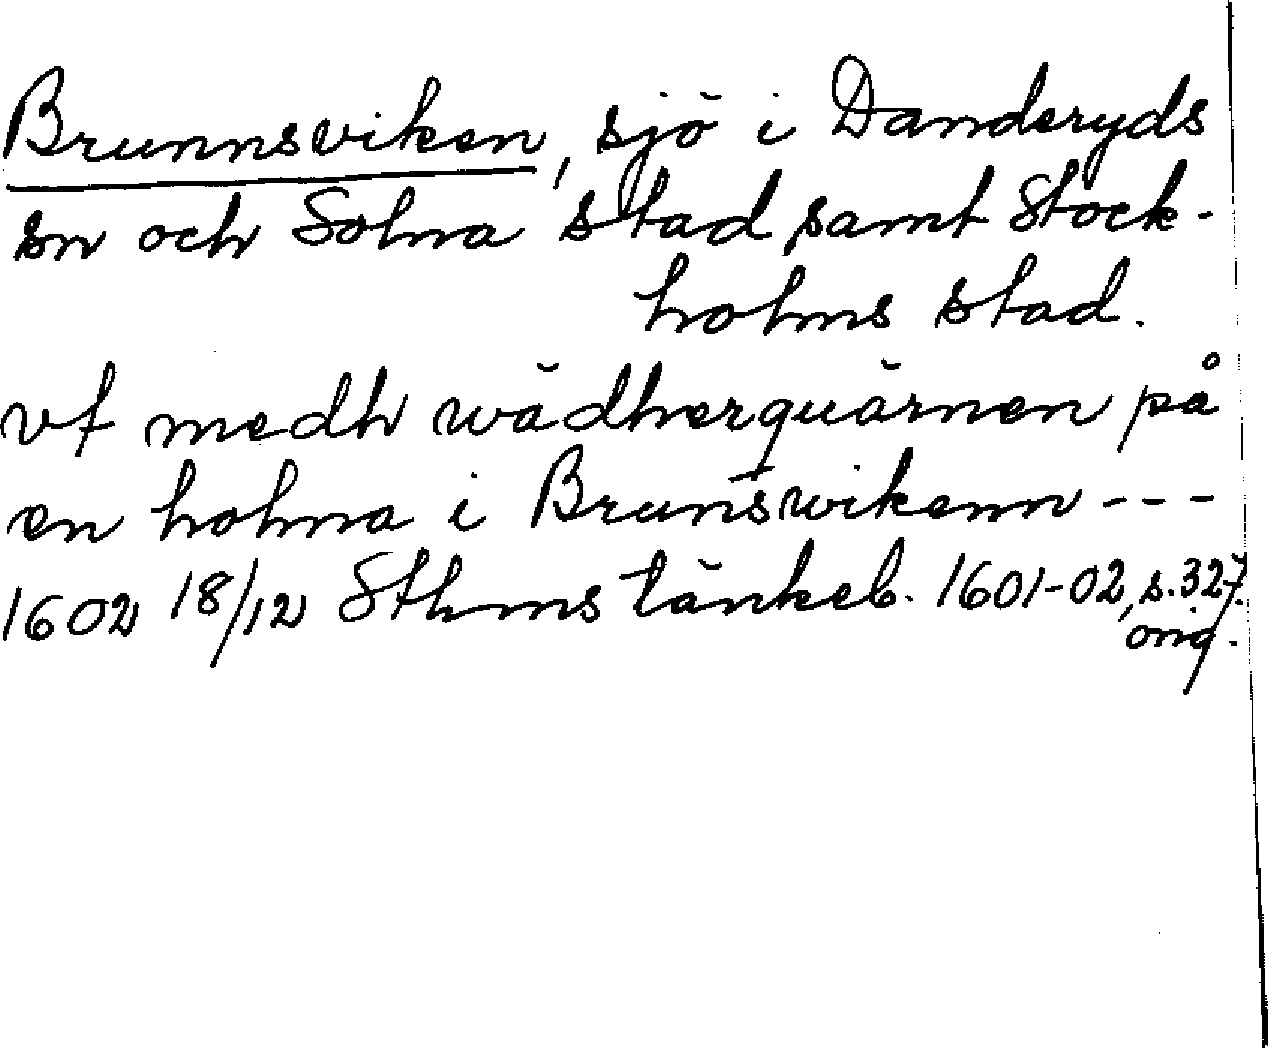 Brunnsviken, sjö i Danderyds
sn och Solna stad samt Stock-
holms stad.
vt medh wädherquärnen på
en holma i Brunswikenn ---
1602 18/12 Sthms tänkeb. 1601-02, s. 327.
orig.